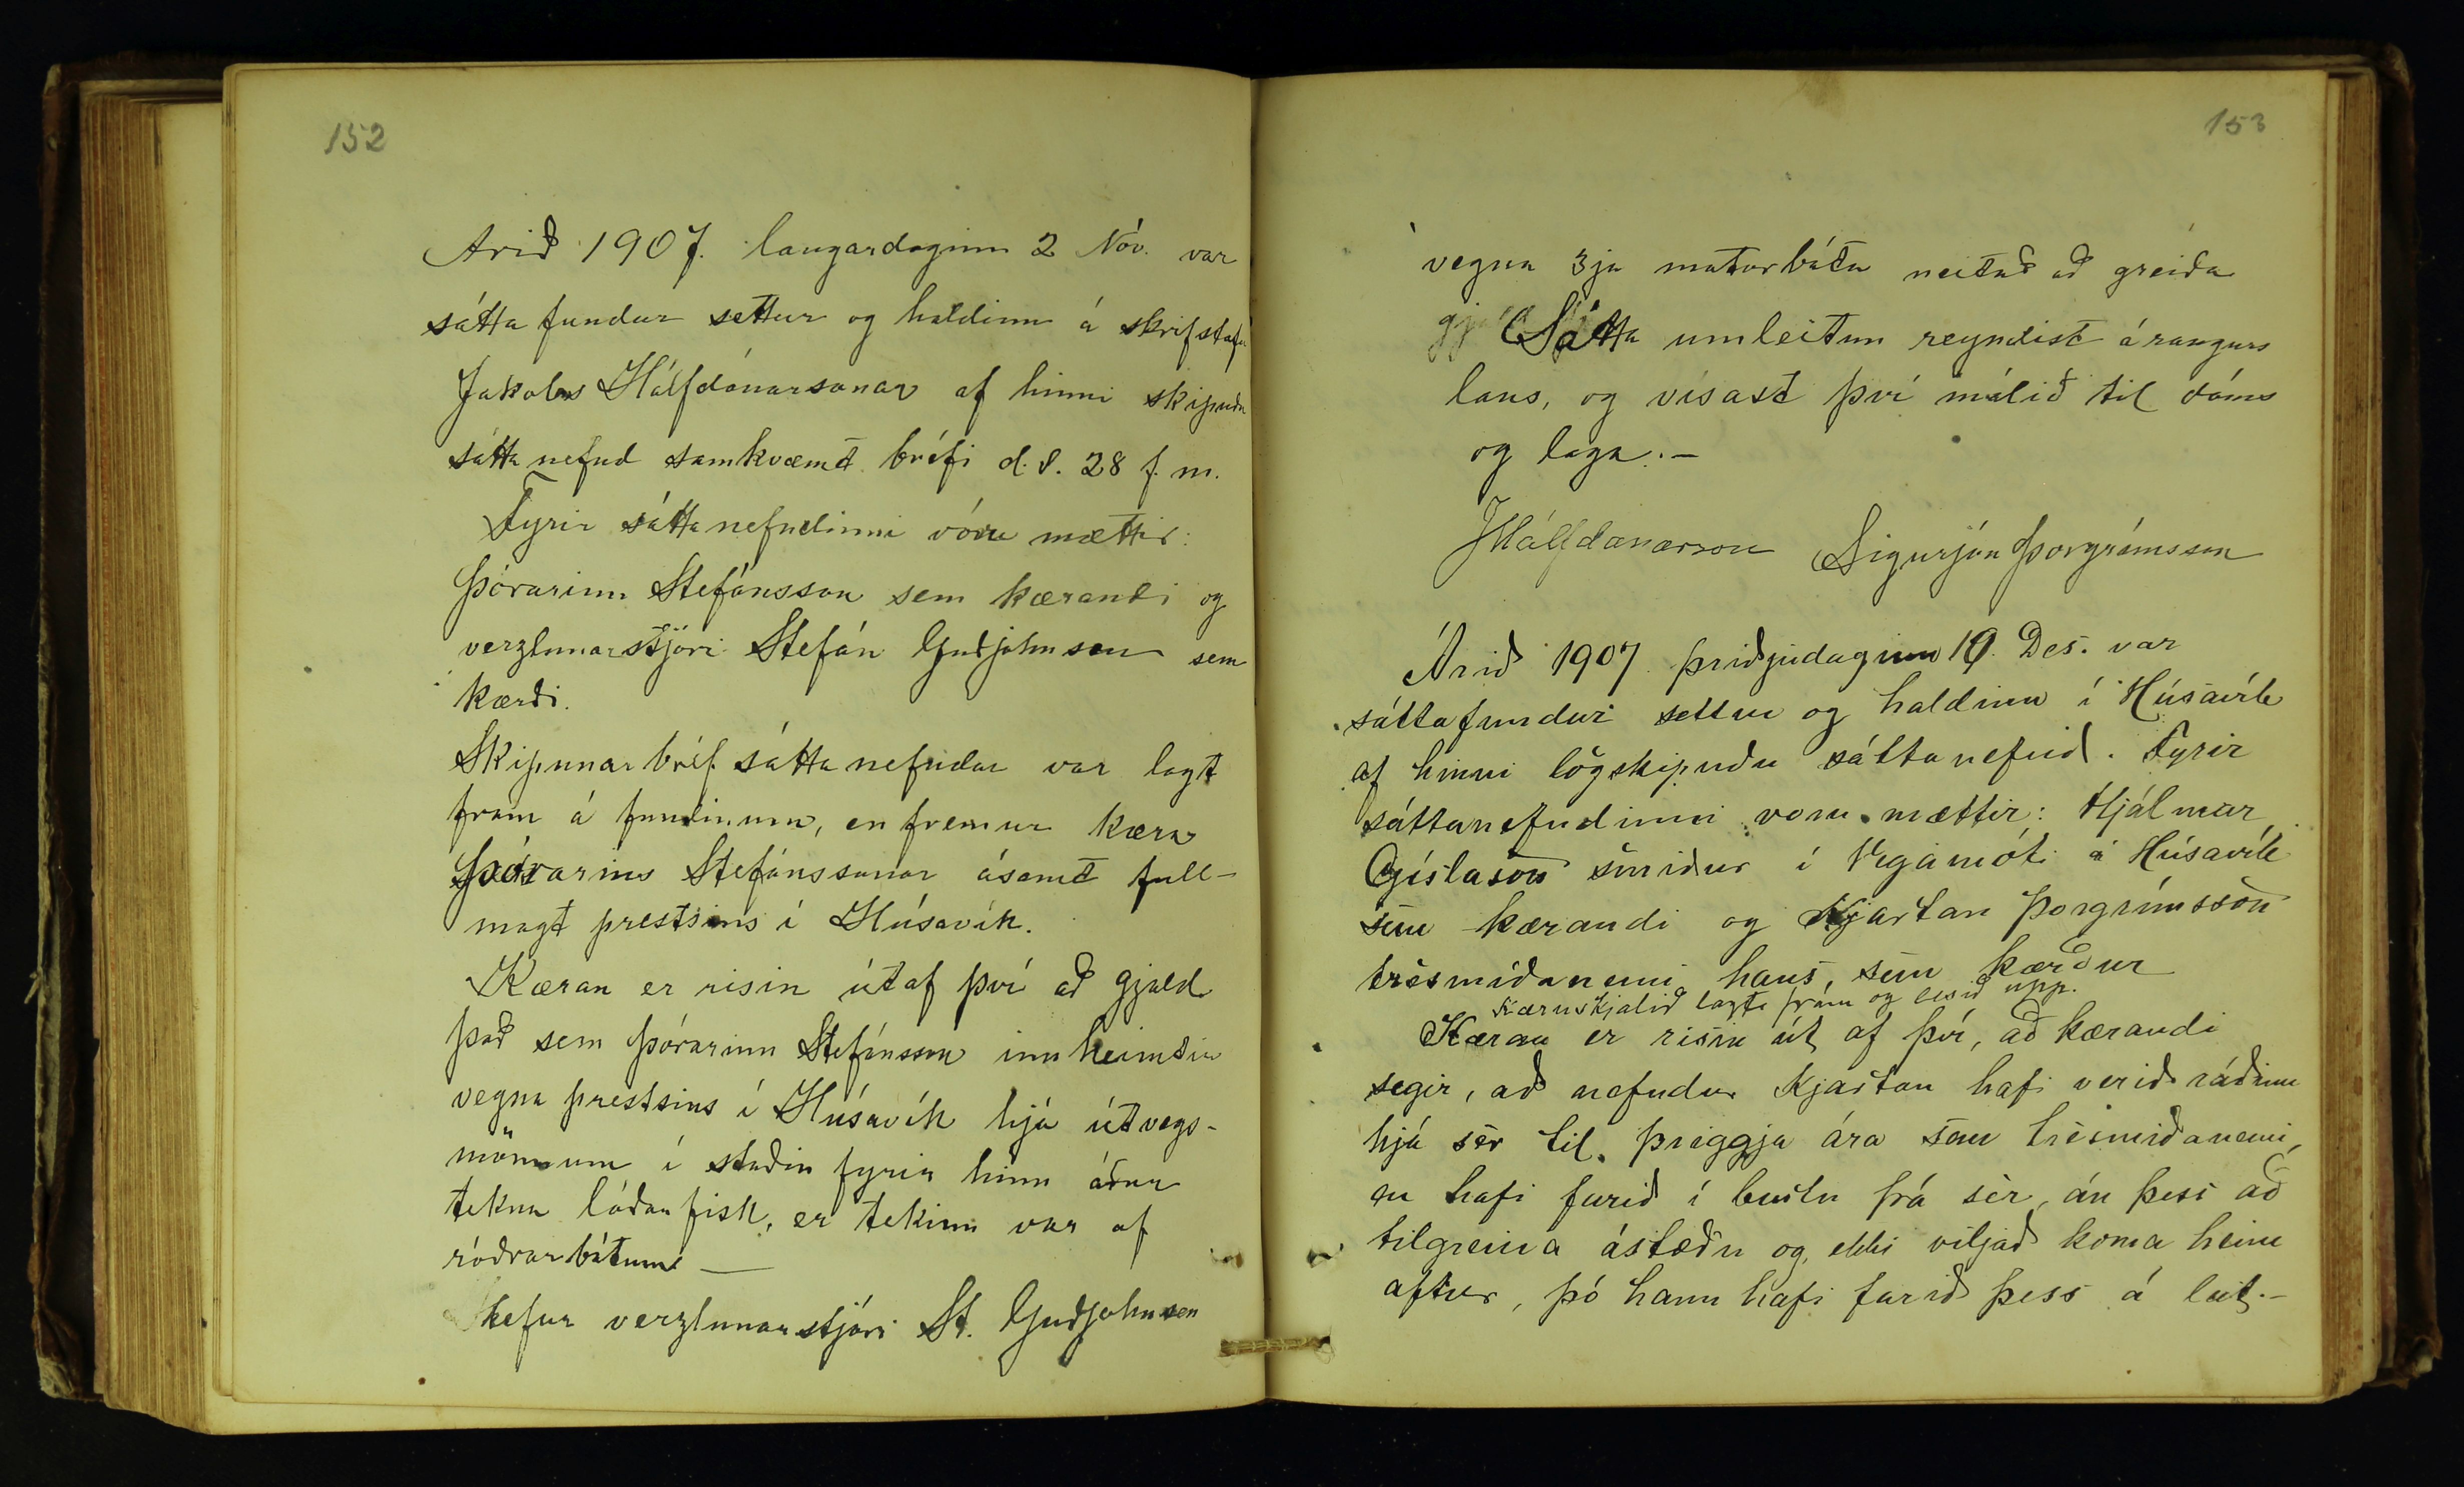 152
Arið 1907. laugardaginn 2 Nóv. var
sátta fundur settur og haldinn á skrifstofu
Jakobs Hálfdánarsonar af hinni skipuðu
sátta nefnd samkvæmt bréfi d.s. 28 f.m.
Fyrir sátta nefndinni vóru mættir:
Þórarinn Stefánsson sem kærandi og
verzlunarstjóri Stefán Guðjohnsen sem
kærði.
Skipunar bréf sátta nefndar var lagt
fram á fundinum, en fremur kæra
Þórarins Stefánssonar ásamt full-
magt prestsins í Húsavík.
Kæran er risin útaf því að gjald
það sem Þórarinn Stefánsson inn heimtir
vegna prestsins í Húsavík hjá útvegs-
mönnum í staðin fyrir hinn áður
tekna lóðar fisk, er tekinn var af
róðrar bátum —
hefur verzlunarstjóri St. Guðjohnsen
153
vegna 3ja motorbáta neitað að greiða
Sátta umleitun reyndist árangurs
laus, og vísast því málið til dóms
og laga. —
JHálfdanarson Sigurjón Þorgrímsson
Árið 1907 þriðjudaginn 10. Des. var
sáttafundur settur og haldinn í Húsavík
af hinni lögskipuðu sáttanefnd. Fyrir
sáttanefndinni voru mættir: Hjálmar
Gíslason smiður í Vegamóti á Húsavík
sem kærandi og Kjartan Þorgrímsson
trésmíðanemi hans, sem kærður
Kæruskjalið lagt fram og lesið upp.
Kæran er risin út af því, að kærandi
segir, að nefndur Kjartan hafi verið ráðinn
hjá sér til þriggja ára sem trésmiðanemi,
en hafi farið í burtu frá sér, án þess að
tilgreina ástæðu og ekki viljað koma heim
aftur, þó hann hafi farið þess á leit. —